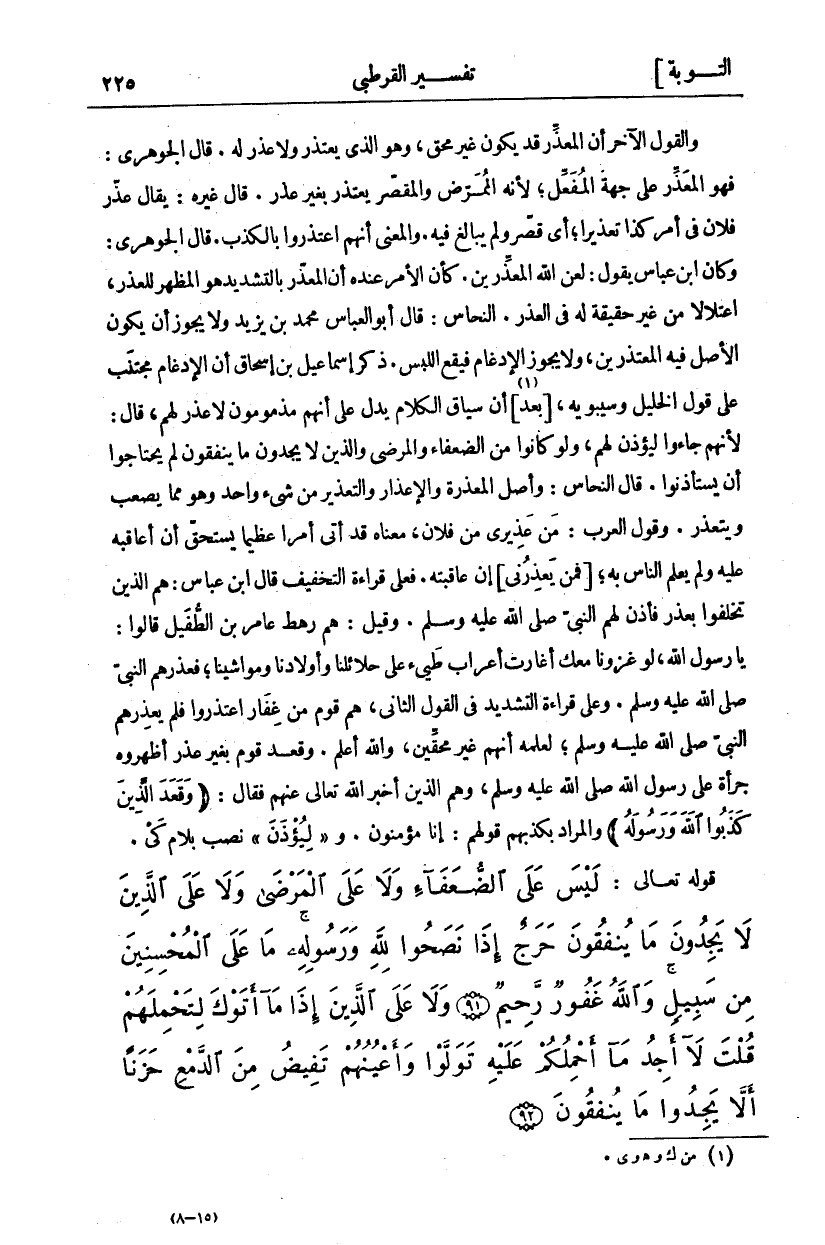 التـــوبة ] تفســـير القرطبى ٢٢٥
والقول الآخر أن المعذِّر قد يكون غير محق، وهو الذى يعتذر ولا عذر له . قال الجوهرى :
فهو المعَذِّر على جهة المُفَعِّل؛ لأنه المُمَرّض والمقصّر يعتذر بغير عذر . قال غيره : يقال عذّر
فلان فى أمر كذا تعذيرا؛ أى قصّر ولم يبالغ فيه. والمعنى أنهم اعتذروا بالكذب. قال الجوهرى :
وكان ابن عباس يقول : لعن الله المعذِّرين. كأن الأمر عنده أن المعذّر بالتشديد هو المظهر للعذر،
اعتلالا من غير حقيقة له فى العذر . النحاس : قال أبو العباس محمد بن يزيد ولا يجوز أن يكون
الأصل فيه المعتذرين، ولا يجوز الإدغام فيقع اللبس. ذكر إسماعيل بن إسحاق أن الإدغام مجتنَب
على قول الخليل وسيبويه ، [بعدَ](١) أن سياق الكلام يدل على أنهم مذمومون لا عذر لهم، قال :
لأنهم جاءوا ليؤذن لهم، ولو كانوا من الضعفاء والمرضى والذين لا يجدون ما ينفقون لم يحتاجوا
أن يستأذنوا . قال النحاس : وأصل المعذرة والإعذار والتعذير من شىء واحد وهو مما يصعب
ويتعذر . وقول العرب : مَن عَذِيرى من فلان، معناه قد أتى أمرا عظيما يستحقّ أن أعاقبه
عليه ولم يعلم الناس به؛ [فمن يَعذِرُنى] إن عاقبته. فعلى قراءة التخفيف قال ابن عباس : هم الذين
تخلفوا بعذر فأذن لهم النبىّ صلى الله عليه وســلم . وقيل : هم رهط عامر بن الطُّفَيل قالوا :
يا رسول الله، لو غزونا معك أغارت أعراب طَيىء على حلائلنا وأولادنا ومواشينا؛ فعذرهم النبىّ
صلى الله عليه وسلم . وعلى قراءة التشديد فى القول الثانى، هم قوم من غِفَار اعتذروا فلم يعذِرهم
النبىّ صلى الله عليــه وسلم ؛ لعلمه أنهم غير محقِّين، والله أعلم . وقعــد قوم بغير عذر أظهروه
جرأة على رسول الله صلى الله عليه وسلم، وهم الذين أخبر الله تعالى عنهم فقال : ﴿ وَقَعَدَ الَّذِينَ
كَذَبُوا ٱللَّهَ وَرَسُولَهُ ﴾ والمراد بكذبهم قولهم : إنا مؤمنون . و « لِيُؤْذَنَ » نصب بلام كَىْ .
قوله تعــالى : لَيْسَ عَلَى ٱلضُّعَفَآءِ وَلَا عَلَى ٱلْمَرْضَىٰ وَلَا عَلَى ٱلَّذِينَ
لَا يَجِدُونَ مَا يُنفِقُونَ حَرَجٌ إِذَا نَصَحُوا لِلَّهِ وَرَسُولِهِۦ ۚ مَا عَلَى ٱلْمُحْسِنِينَ
مِن سَبِيلٍ ۚ وَٱللَّهُ غَفُورٌ رَّحِيمٌ ﴿٩١﴾ وَلَا عَلَى ٱلَّذِينَ إِذَا مَآ أَتَوْكَ لِتَحْمِلَهُمْ
قُلْتَ لَآ أَجِدُ مَآ أَحْمِلُكُمْ عَلَيْهِ تَوَلَّوا وَأَعْيُنُهُمْ تَفِيضُ مِنَ ٱلدَّمْعِ حَزَنًا
أَلَّا يَجِدُوا مَا يُنفِقُونَ ﴿٩٢﴾
(١) من ك و هـ و ى .
(٨–١٥)